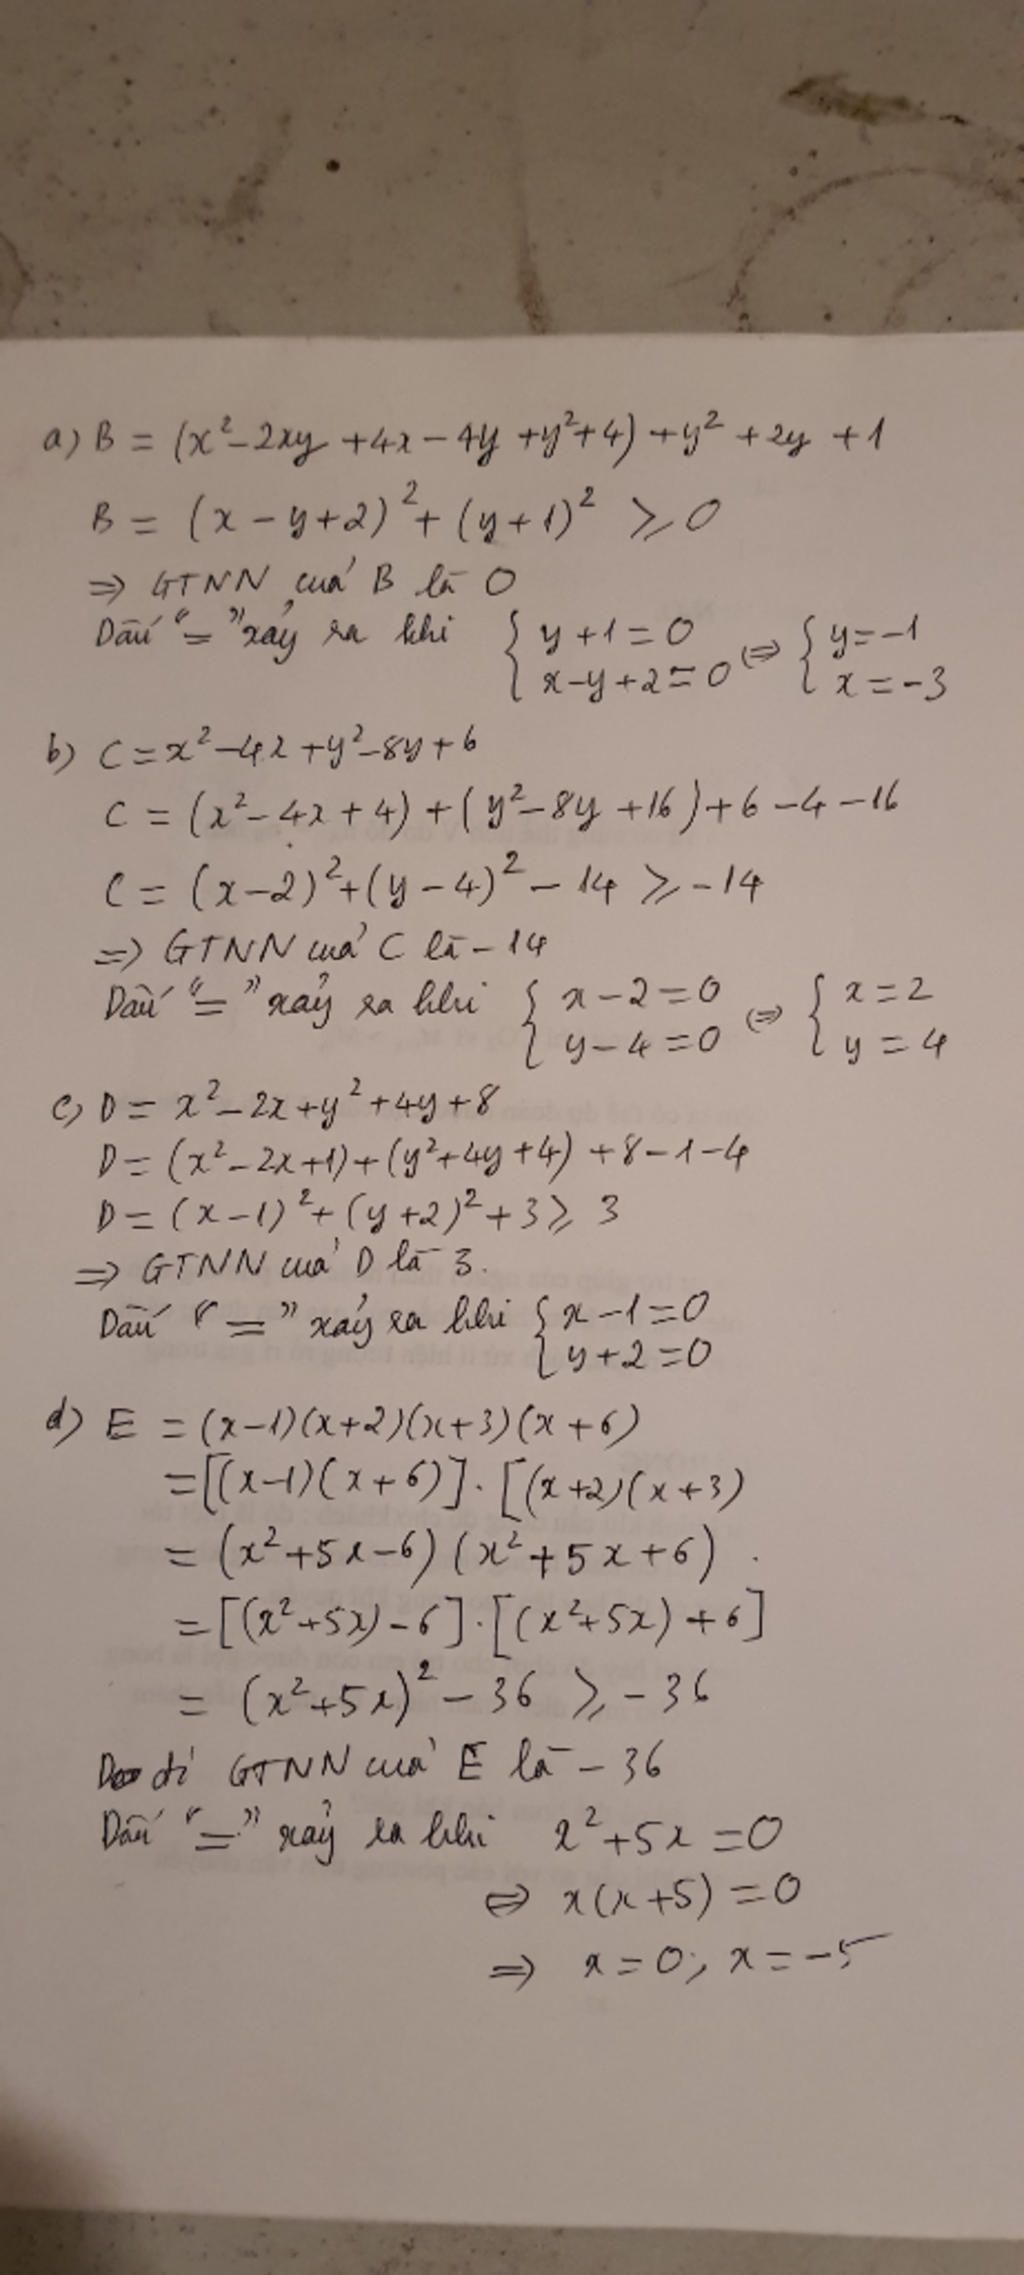 a) B = (x² - 2xy + 4x - 4y + y² + 4) + y² + 2y + 1
B = (x - y + 2)² + (y + 1)² ≥ 0
⇒ GTNN của B là 0
Dấu "=" xảy ra khi { y + 1 = 0 ; x - y + 2 = 0 ⇔ { y = -1 ; x = -3
b) C = x² - 4x + y² - 8y + 6
C = (x² - 4x + 4) + (y² - 8y + 16) + 6 - 4 - 16
C = (x - 2)² + (y - 4)² - 14 ≥ -14
⇒ GTNN của C là -14
Dấu "=" xảy ra khi { x - 2 = 0 ; y - 4 = 0 ⇔ { x = 2 ; y = 4
c) D = x² - 2x + y² + 4y + 8
D = (x² - 2x + 1) + (y² + 4y + 4) + 8 - 1 - 4
D = (x - 1)² + (y + 2)² + 3 ≥ 3
⇒ GTNN của D là 3.
Dấu "=" xảy ra khi { x - 1 = 0 ; y + 2 = 0
d) E = (x - 1)(x + 2)(x + 3)(x + 6)
= [(x - 1)(x + 6)] . [(x + 2)(x + 3)
= (x² + 5x - 6)(x² + 5x + 6)
= [(x² + 5x) - 6] . [(x² + 5x) + 6]
= (x² + 5x)² - 36 ≥ -36
GTNN của E là -36
Dấu "=" xảy ra khi x² + 5x = 0
⇔ x(x + 5) = 0
⇒ x = 0; x = -5